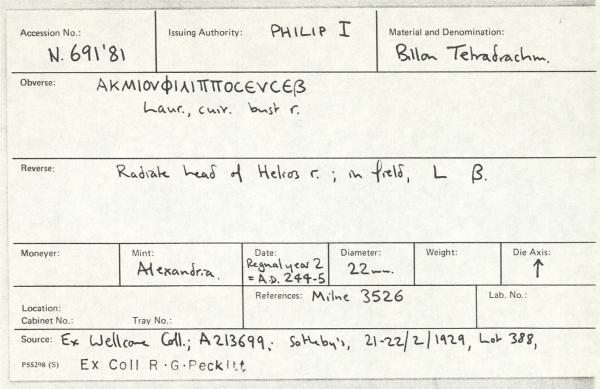 Accession No.: N.691'81
Issuing Authority: PHILIP I
Material and Denomination: Billon Tetradrachm.
Obverse: ΑΚΜΙΟVΦΙΛΙΠΠΟCЄVCЄβ
Laur., cuir. bust r.
Reverse: Radiate head of Helios r. ; in field, L β.
Moneyer:
Mint: Alexandria.
Date: Regnal year 2
= A.D. 244-5
Diameter: 22mm.
Weight:
Die Axis: ↑
Location:
Cabinet No.: Tray No.:
References: Milne 3526
Lab. No.:
Source: Ex Wellcome Coll.; A213699; Sotheby's, 21-22/2/1929, Lot 388,
P55298 (S) Ex Coll R·G·Peckitt